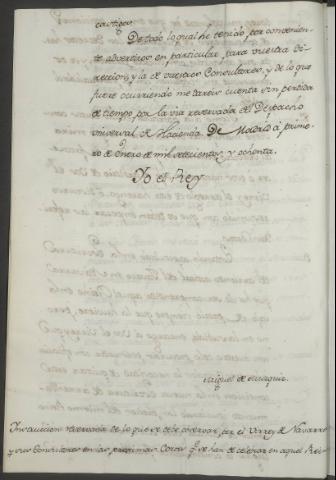 castigo.
De todo lo qual he tenido por convenien-
te advertiros en particular para vuestra di-
reccion, y la de vuestros Consultores, y de lo que
fuere ocurriendo me dareis cuenta sin perdida
de tiempo por la via reservada del Despacho
universal de Hacienda. De Madrid á prime-
ro de enero de mil setecientos y ochenta.
Yo el Rey
Miguel de Muzquiz.
Instruccion reservada de lo que se debe observar por el Virrey de Navarra
y sus Consultores en las proximas Cortes q.e se han de celebrar en aquel Rei-